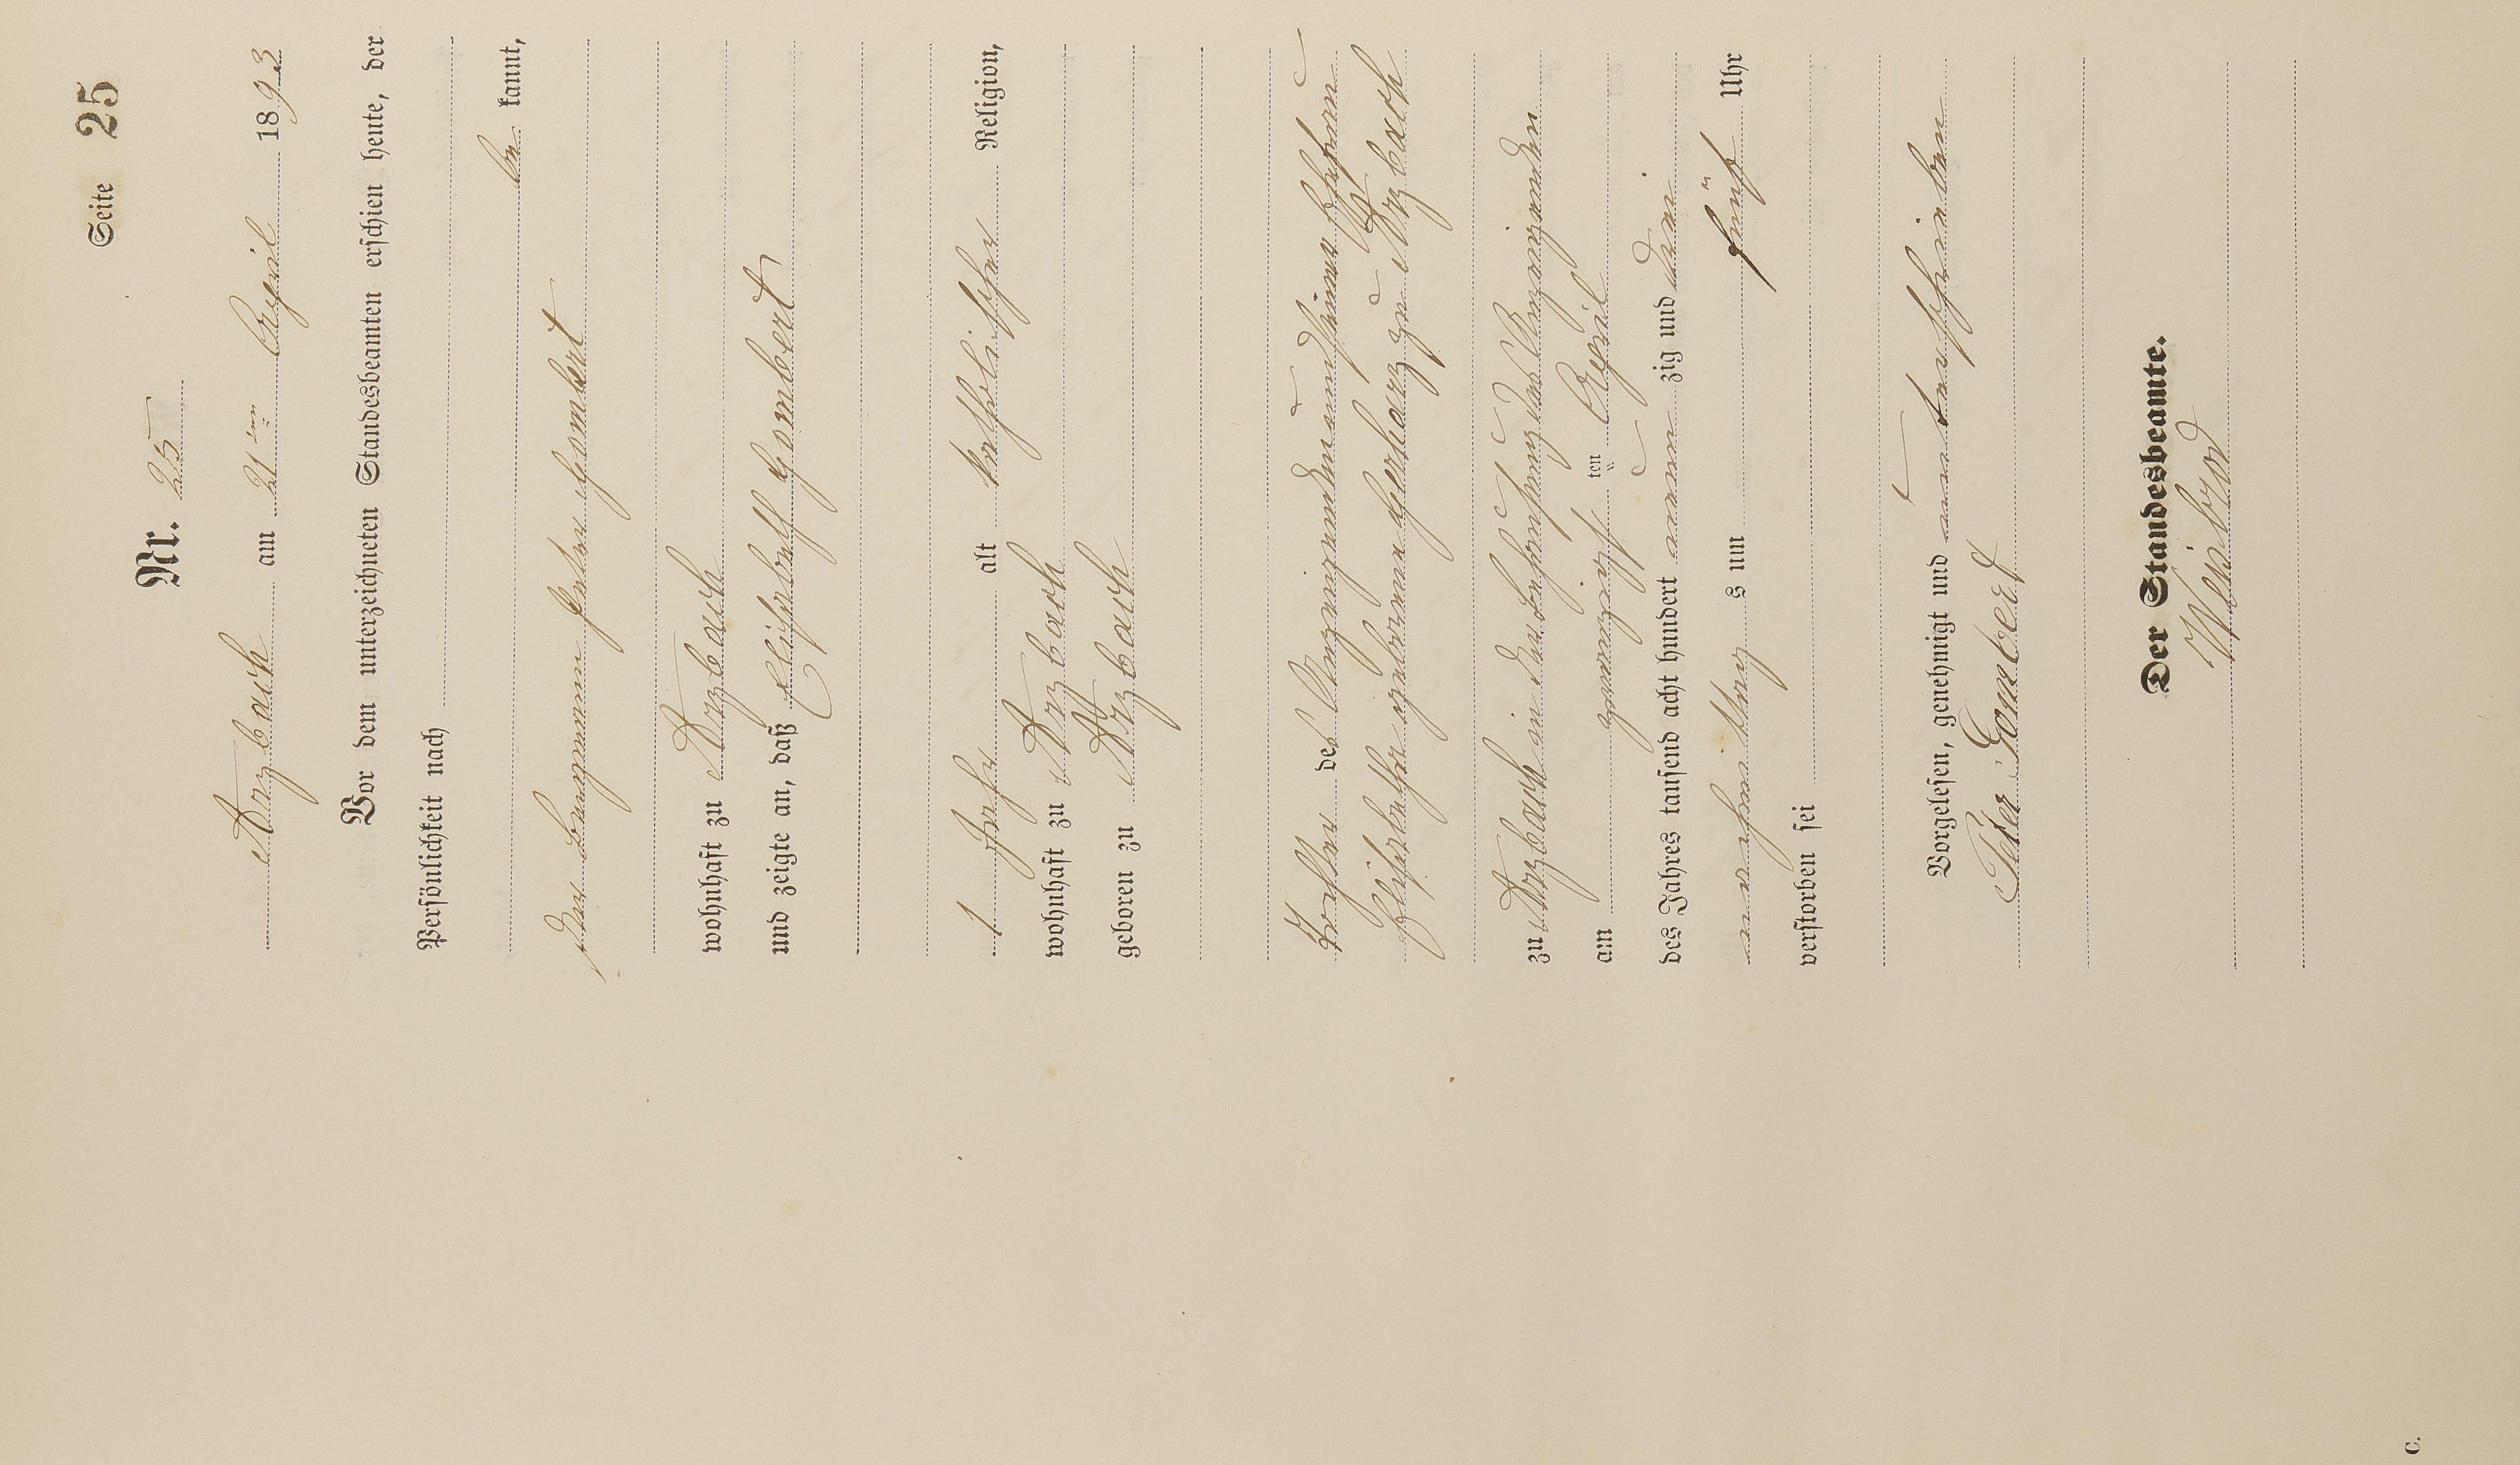 Seite 25
Nr. 25
Arzbach am 21ten April 1893
Vor dem unterzeichneten Standesbeamten erschien heute, der
Persönlichkeit nach
be kannt,
der Bergmann Peter Gombert
wohnhaft zu Arzbach
und zeigte an, daß Elisabeth Gombert
1 Jahr alt katholischer Religion,
wohnhaft zu Arzbach
geboren zu Arzbach
Tochter des Anzeigenden und seiner Ehefrau
Elisabetha geborene Gerharz zu Arzbach
zu Arzbach in der Behausung des Anzeigenden
am zwanzigsten April
des Jahres tausend acht hundert neun zig und drei
nachmittag s um fünf Uhr
verstorben sei
Vorgelesen, genehmigt und unterschrieben
Peter Gombert
Der Standesbeamte.
C.